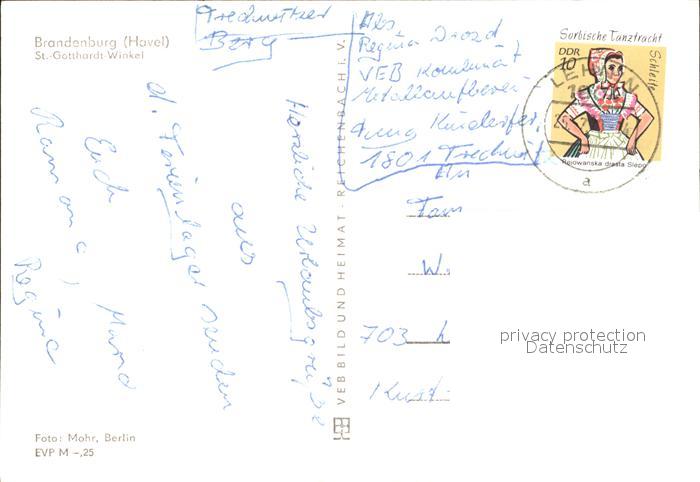 Brandenburg (Havel)
St.-Gotthardt-Winkel
Berg
Herzliche Urlaubsgrüße
aus
d. Ferienlager senden
Euch
Ramona, Mario
Regina
Foto: Mohr, Berlin
EVP M -,25
VEB BILD UND HEIMAT · REICHENBACH i. V.
Abs
Regina Drozd
VEB Kombinat
Metallaufberei
1801
An
Fam
W.
703
Sorbische Tanztracht
Schleife
DDR
10
Rejowanska drasta Slepo
LEHNIN
a
privacy protection
Datenschutz